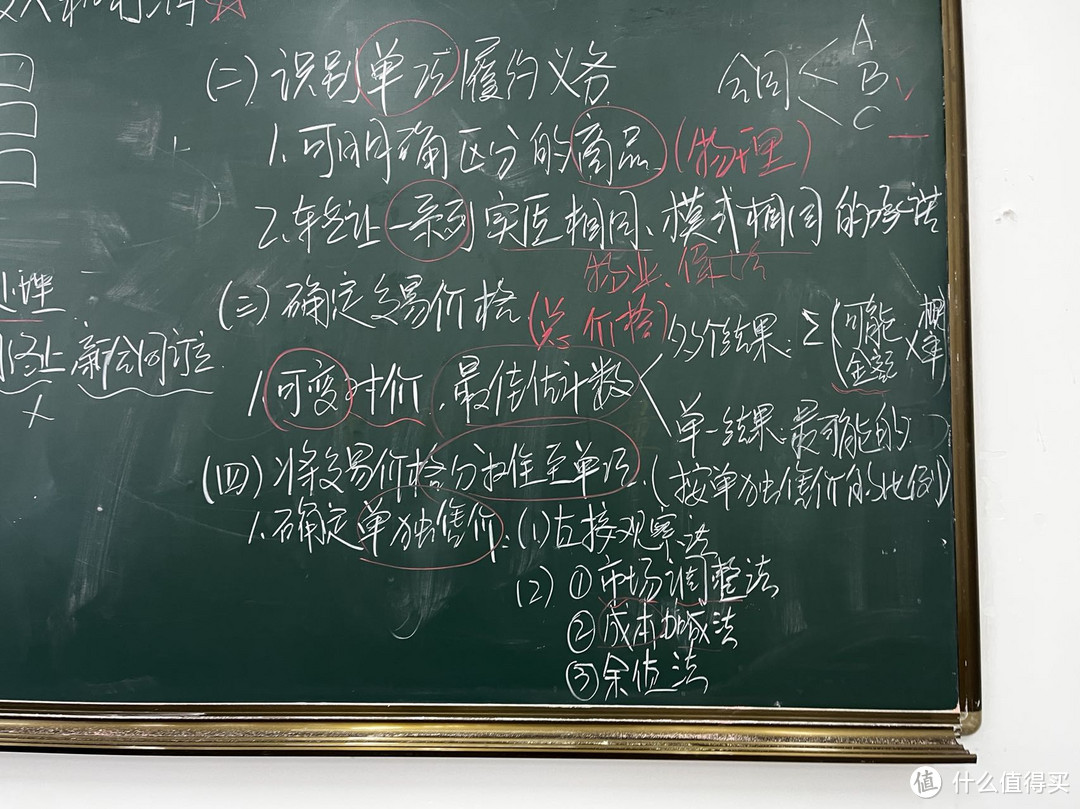 (二)识别单项履约义务
合同 A B C
1.可明确区分的商品(物理)
2.转让一系列实质相同、模式相同的承诺
物业、保洁
(三)确定交易价格(总价格)
多个结果:Σ(可能金额×概率)
1.可变对价.最佳估计数
单一结果:最可能的.
(四)将交易价格分摊至单项.(按单独售价的比例)
1.确定单独售价:(1)直接观察法
(2)①市场调整法
②成本加成法
③余值法
处理
终止 新合同
×
值 什么值得买